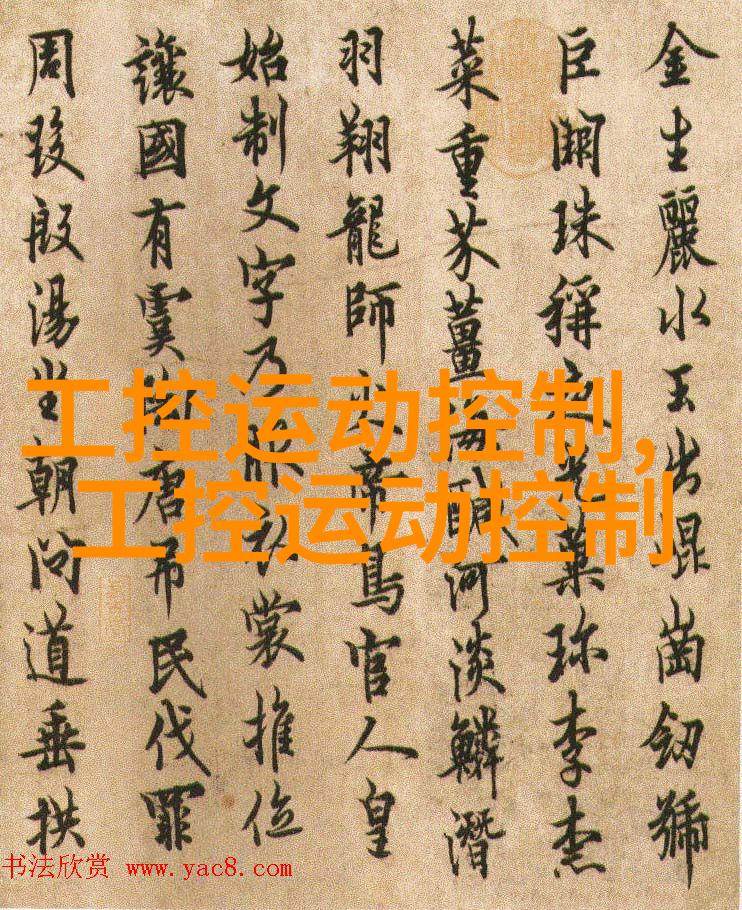 金生麗水玉出崑崗劒號
巨闕珠稱夜光菓珎李柰
菜重芥薑海醎河淡鱗潛
羽翔龍師火帝鳥官人皇
始制文字乃服衣裳推位
讓國有虞陶唐弔民伐罪
周發殷湯坐朝問道垂拱
工控运动控制,
工控运动控制
书法欣赏 www.yac8.com